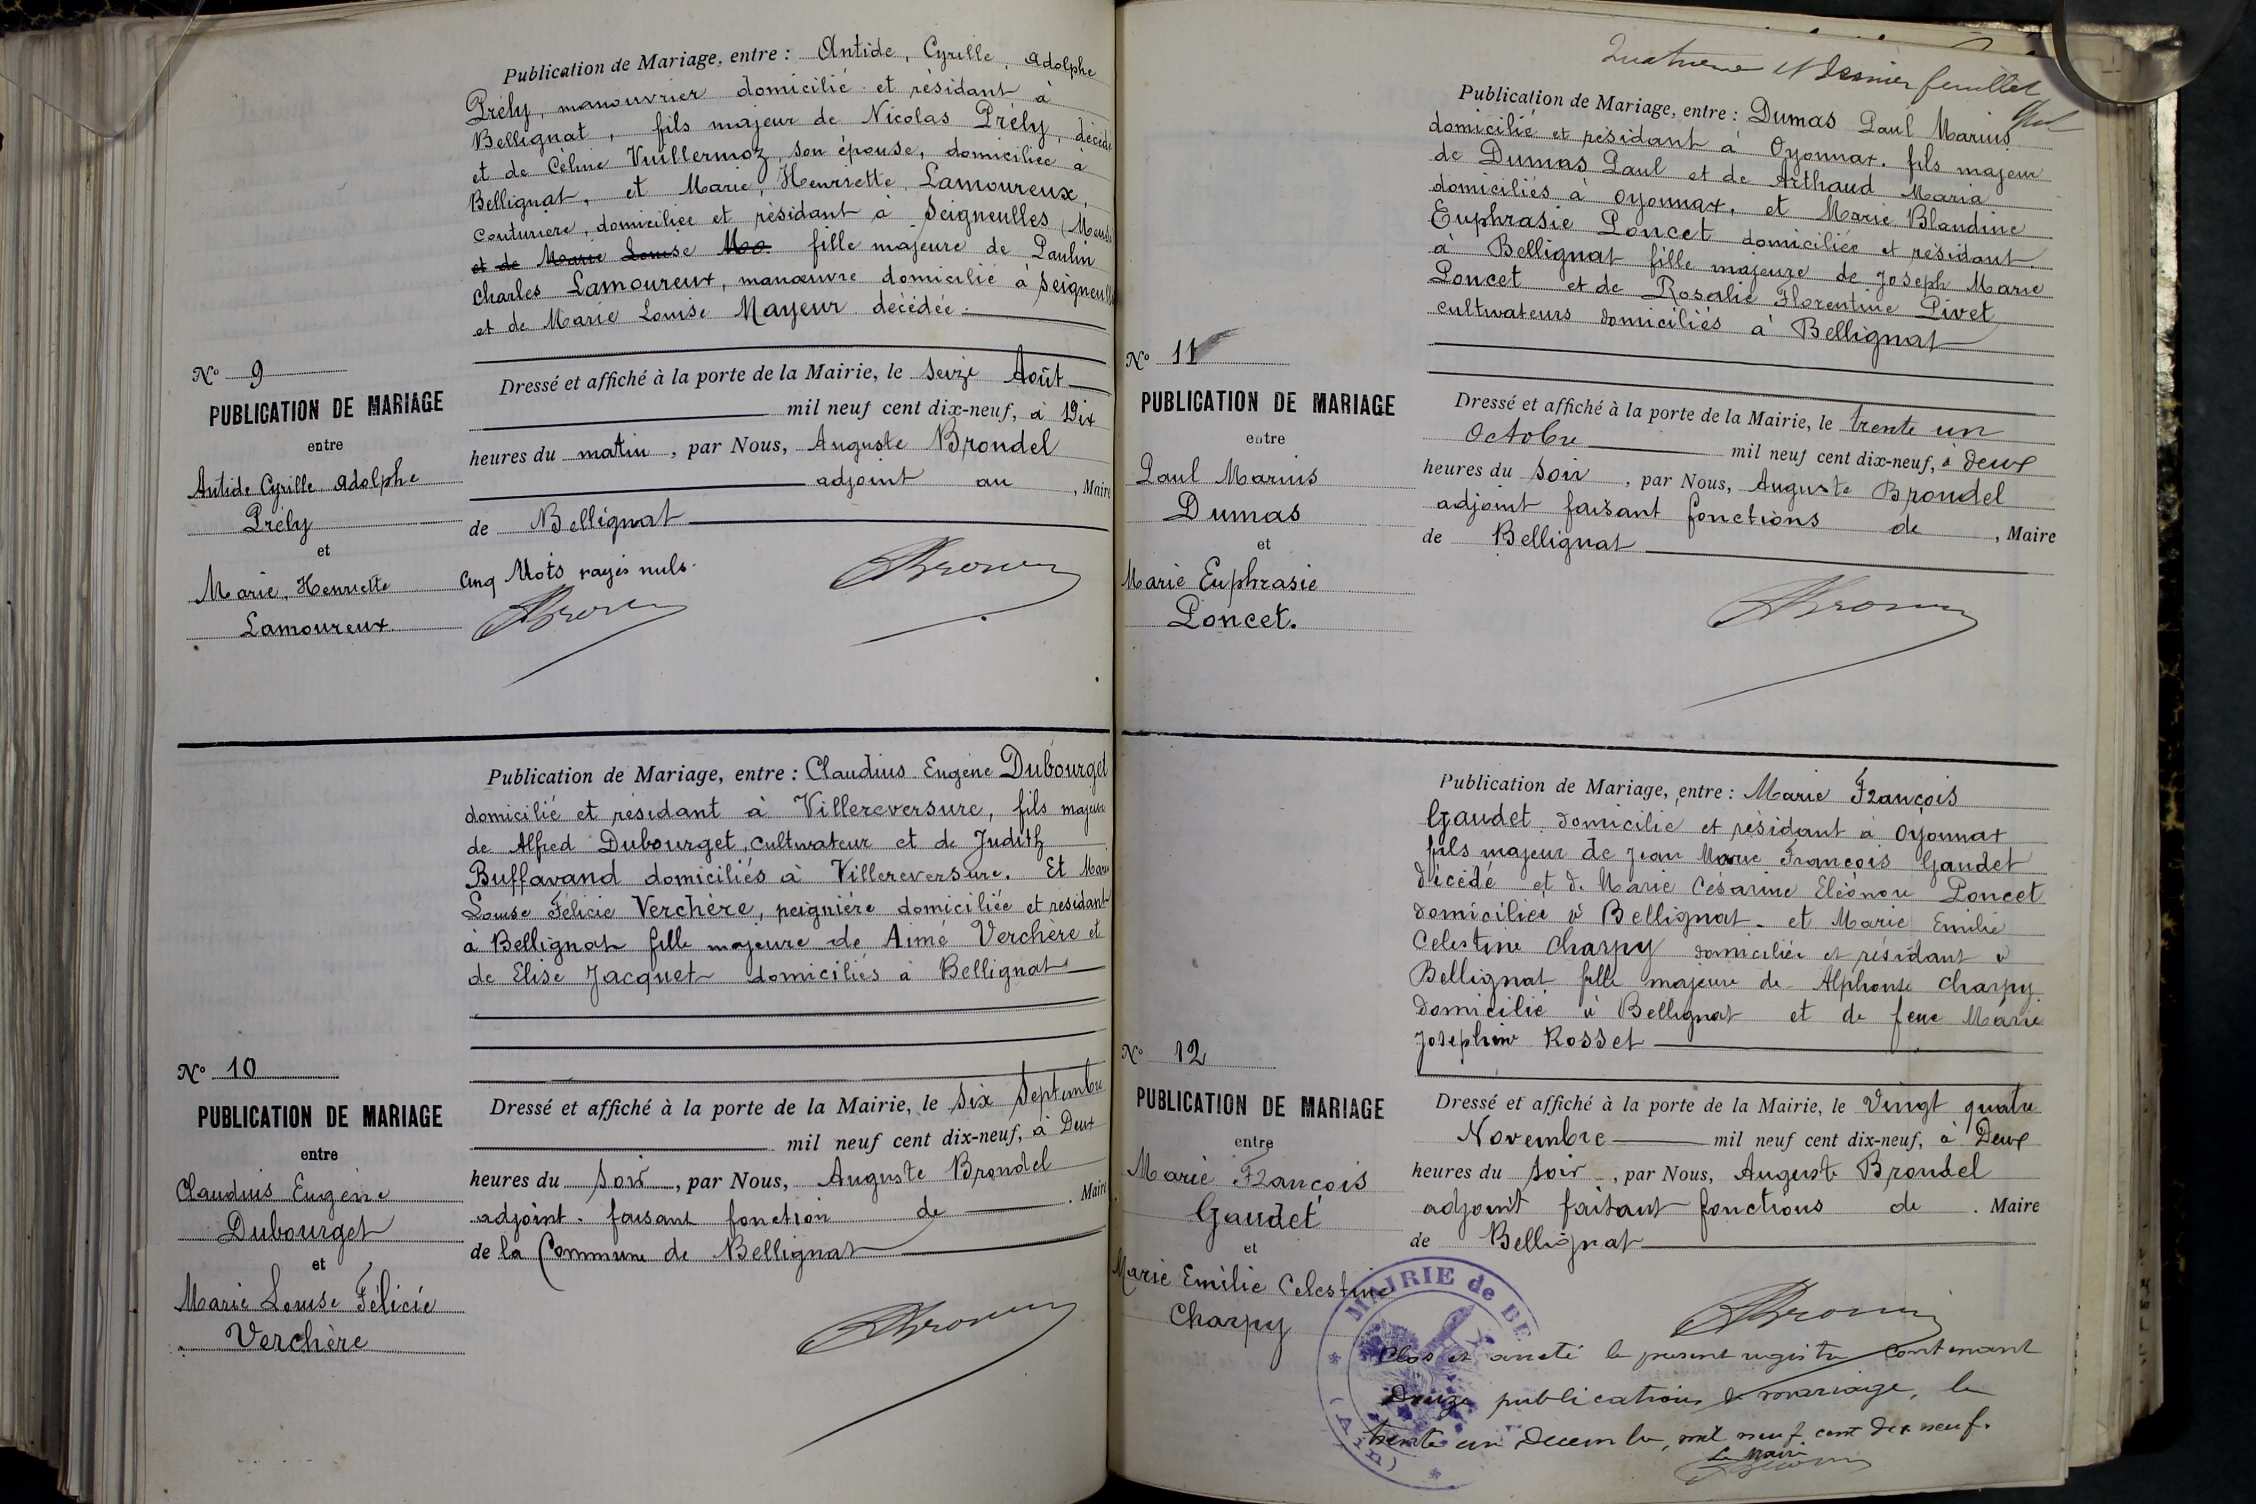 Publication de Mariage, entre : Antide, Cyrille, Adolphe
Prély, manouvrier domicilié et résidant à
Bellignat, fils majeur de Nicolas Prély, décédé
et de Céline Vuillermoz, son épouse, domiciliée à
Bellignat, et Marie, Henriette, Lamoureux,
couturière, domiciliée et résidant à Seigneulles (Meuse)
et de Marie Louise Mo fille majeure de Paulin
Charles Lamoureux, manœuvre domicilié à Seigneulles
et de Marie Louise Mayeur décédée.
N° 9
PUBLICATION DE MARIAGE
entre
Antide Cyrille Adolphe
Prély
et
Marie, Henriette
Lamoureux
Dressé et affiché à la porte de la Mairie, le seize Août
mil neuf cent dix-neuf, à Dix
heures du matin, par Nous, Auguste Brondel
adjoint au , Maire
de Bellignat
Cinq Mots rayés nuls.
Publication de Mariage, entre : Claudius Eugène Dubourget
domicilié et résidant à Villereversure, fils majeur
de Alfred Dubourget, cultivateur et de Judith
Buffavand domiciliés à Villereversure. Et Marie
Louise Félicie Verchère, peignière domiciliée et résidant
à Bellignat fille majeure de Aimé Verchère et
de Elise Jacquet domiciliés à Bellignat
N° 10
PUBLICATION DE MARIAGE
entre
Claudius Eugène
Dubourget
et
Marie Louise Félicie
Verchère
Dressé et affiché à la porte de la Mairie, le six Septembre
mil neuf cent dix-neuf, à Deux
heures du soir, par Nous, Auguste Brondel
adjoint. faisant fonction de . Maire
de la Commune de Bellignat
Quatrième et Dernier feuillet
Publication de Mariage, entre : Dumas Paul Marius
domicilié et résidant à Oyonnax. fils majeur
de Dumas Paul et de Arthaud Maria
domiciliés à Oyonnax. et Marie Blandine
Euphrasie Poncet domiciliée et résidant
à Bellignat fille majeure de Joseph Marie
Poncet et de Rosalie Florentine Pivet
cultivateurs domiciliés à Bellignat
N° 11
PUBLICATION DE MARIAGE
entre
Paul Marius
Dumas
et
Marie Euphrasie
Poncet.
Dressé et affiché à la porte de la Mairie, le trente un
Octobre mil neuf cent dix-neuf, à Deux
heures du soir, par Nous, Auguste Brondel
adjoint faisant fonctions de , Maire
de Bellignat
Publication de Mariage, entre : Marie François
Gaudet domicilié et résidant à Oyonnax
fils majeur de Jean Marie François Gaudet
décédé et de Marie Césarine Eléonore Poncet
domiciliée à Bellignat. et Marie Emilie
Celestine Charpy domiciliée et résidant à
Bellignat fille majeure de Alphonse Charpy
domicilié à Bellignat et de feue Marie
Josephine Rosset
N° 12
PUBLICATION DE MARIAGE
entre
Marie François
Gaudet
et
Marie Emilie Celestine
Charpy
Dressé et affiché à la porte de la Mairie, le Vingt quatre
Novembre mil neuf cent dix-neuf, à Deux
heures du soir, par Nous, Auguste Brondel
adjoint faisant fonctions de . Maire
de Bellignat
MAIRIE de BE
(Ain)
Clos et arrêté le présent registre contenant
Douze publications de mariage, le
trente un Decembre, mil neuf cent dix neuf.
Le Maire